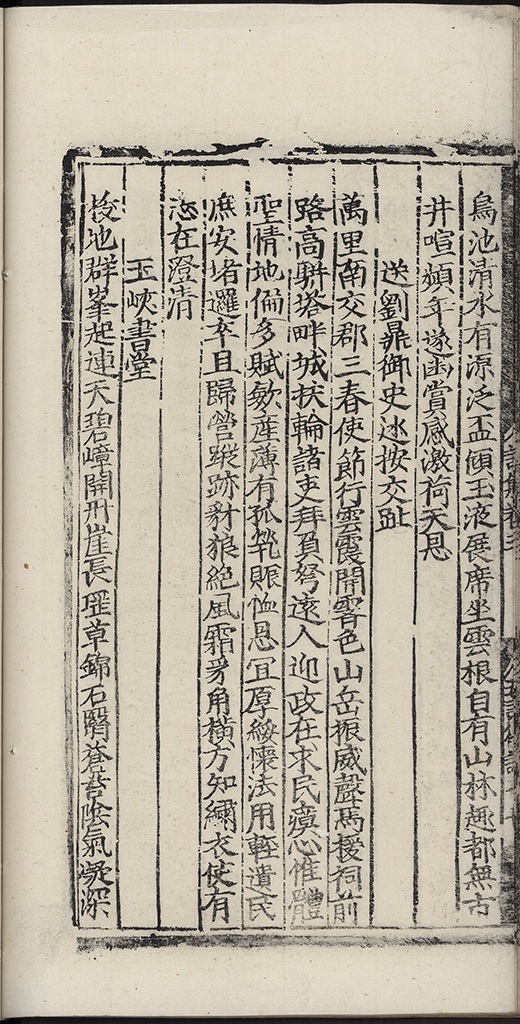 鳥池清水有源泛盃傾玉液展席坐雲根自有山林趣都無古
井喧頻年遂幽賞感激荷天恩
送劉鼎御史巡按交趾
萬里南交郡三春使節行雲霞開霽色山岳振威聲馬援祠前
路高駢塔畔城扶輪諸吏拜負弩遠人迎政在求民瘼心惟體
聖情地偏多賦斂産薄有孤煢賑恤恩冝厚綏懷法用輕遺民
庶安堵邏卒且歸營蹤跡豺狼絶風霜豸角橫方知繡衣使有
志在澄清
玉峽書堂
拔地群峯起連天碧嶂開丹崖長瑶草錦石翳蒼苔陰氣凝深